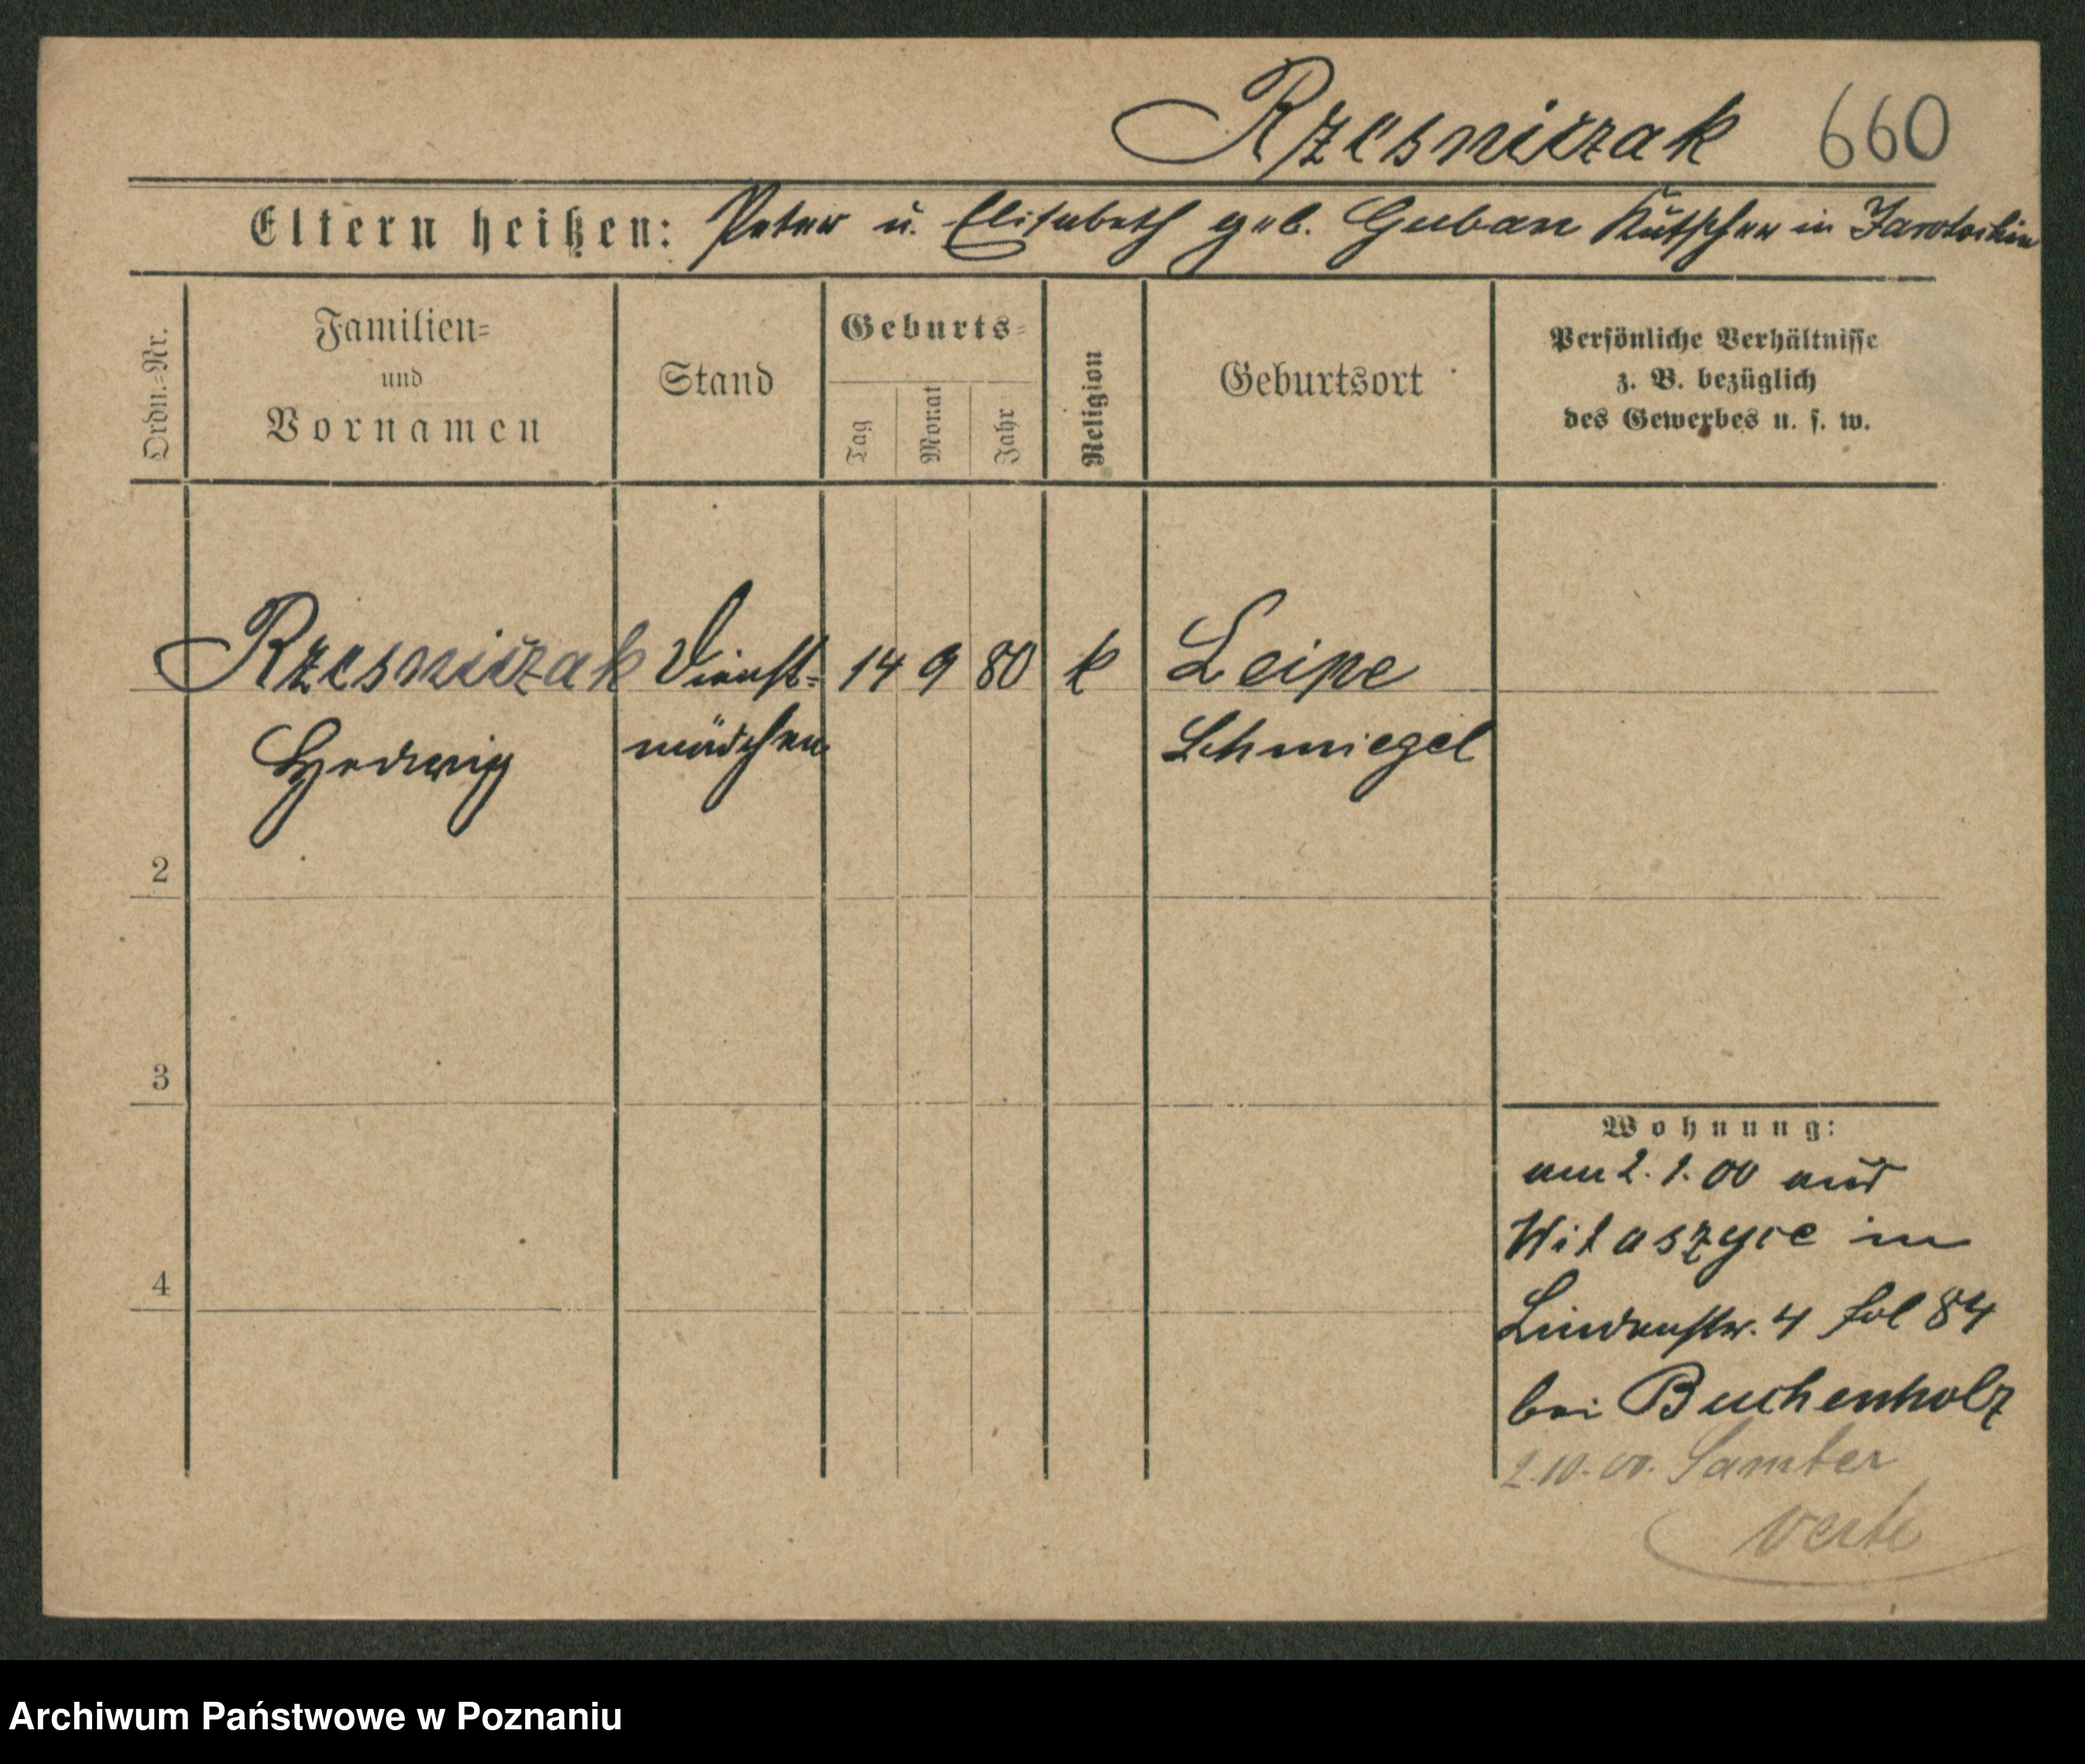 Rzesniczak 660
Eltern heißen: Peter u. Elisabeth geb. Guban Kutscher in Jarotschin
Ordn.-Nr.
Familien-
und
Vornamen
Stand
Geburts-
Tag
Monat
Jahr
Religion
Geburtsort
Persönliche Verhältnisse
z. B. bezüglich
des Gewerbes u. s. w.
Rzesniczak Dienst- 14 9 80 k Leipe
Hedwig mädchen Schmiegel
2
3
4
Wohnung:
am 2.1.00 aus
Witaszyce in
Lindenstr. 4 fol 84
bei Buchenholz
2.10.00. Samter
verte
Archiwum Państwowe w Poznaniu